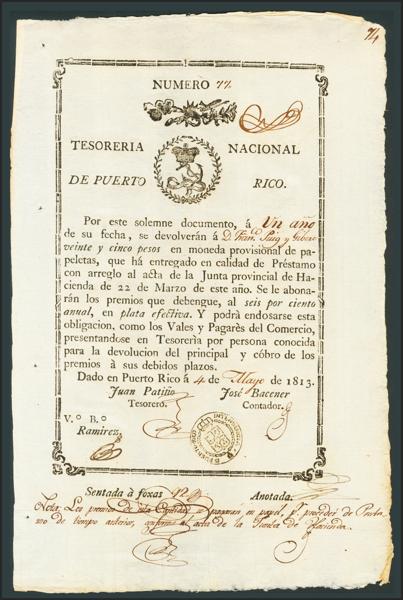 74
NUMERO 77.
TESORERIA NACIONAL
DE PUERTO RICO.
Por este solemne documento, á Un año
de su fecha, se devolverán á D. Fran.co Puig y
veinte y cinco pesos en moneda provisional de pa-
peletas, que há entregado en calidad de Préstamo
con arreglo al acta de la Junta provincial de Ha-
cienda de 22 de Marzo de este año. Se le abona-
rán los premios que debengue, al seis por ciento
anual, en plata efectiva. Y podrá endosarse esta
obligacion, como los Vales y Pagarès del Comercio,
presentandose en Tesorerìa por persona conocida
para la devolucion del principal y cóbro de los
premios à sus debidos plazos.
Dado en Puerto Rico á 4 de Mayo de 1813.
Juan Patiño José Bacener
Tesorero. Contador.
V.º B.º
Ramirez.
Sentada à foxas 12 Anotada.
Nota: Los premios de esta Cantidad se pagarán en papel, p.r proceder de Presta-
mo de tiempo anterior, conforme al acta de la Junta de Hacienda.